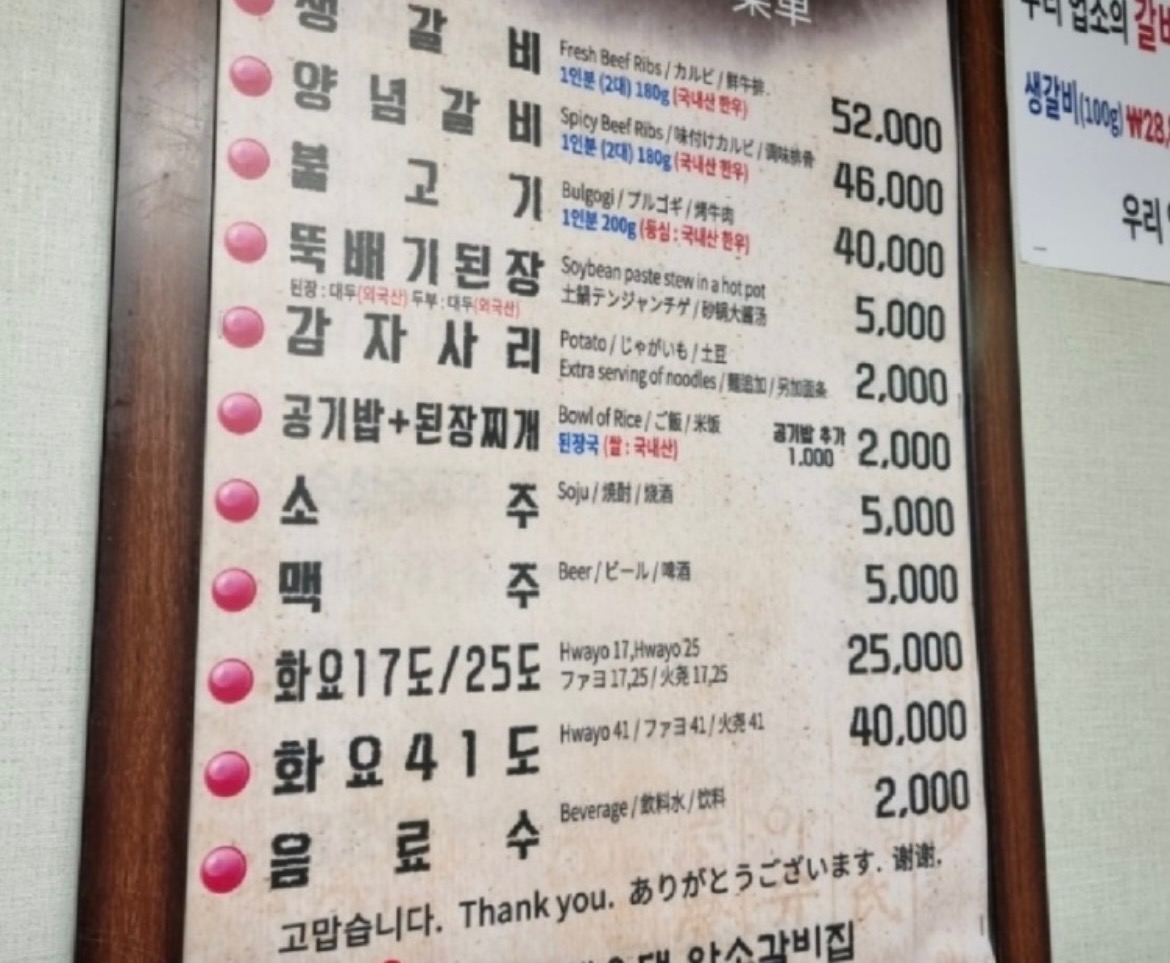 菜单
생갈비 Fresh Beef Ribs / カルビ / 鮮牛排
1인분 (2대) 180g (국내산 한우) 52,000
양념갈비 Spicy Beef Ribs / 味付けカルビ / 调味排骨
1인분 (2대) 180g (국내산 한우) 46,000
불고기 Bulgogi / プルゴギ / 烤牛肉
1인분 200g (등심 : 국내산 한우) 40,000
뚝배기된장 Soybean paste stew in a hot pot
된장 : 대두(외국산) 두부 : 대두(외국산) 土鍋テンジャンチゲ / 砂锅大醬汤 5,000
감자사리 Potato / じゃがいも / 土豆
Extra serving of noodles / 麺追加 / 另加面条 2,000
공기밥+된장찌개 Bowl of Rice / ご飯 / 米饭
된장국 (쌀 : 국내산) 공기밥 추가 1.000 2,000
소주 Soju / 焼酎 / 烧酒 5,000
맥주 Beer / ビール / 啤酒 5,000
화요17도/25도 Hwayo 17,Hwayo 25
ファヨ 17,25 / 火尧 17,25 25,000
화요41도 Hwayo 41 / ファヨ 41 / 火尧 41 40,000
음료수 Beverage / 飲料水 / 饮料 2,000
고맙습니다. Thank you. ありがとうございます. 谢谢.
암소갈비집
우리 업소의 갈비
생갈비(100g) ₩28,
우리